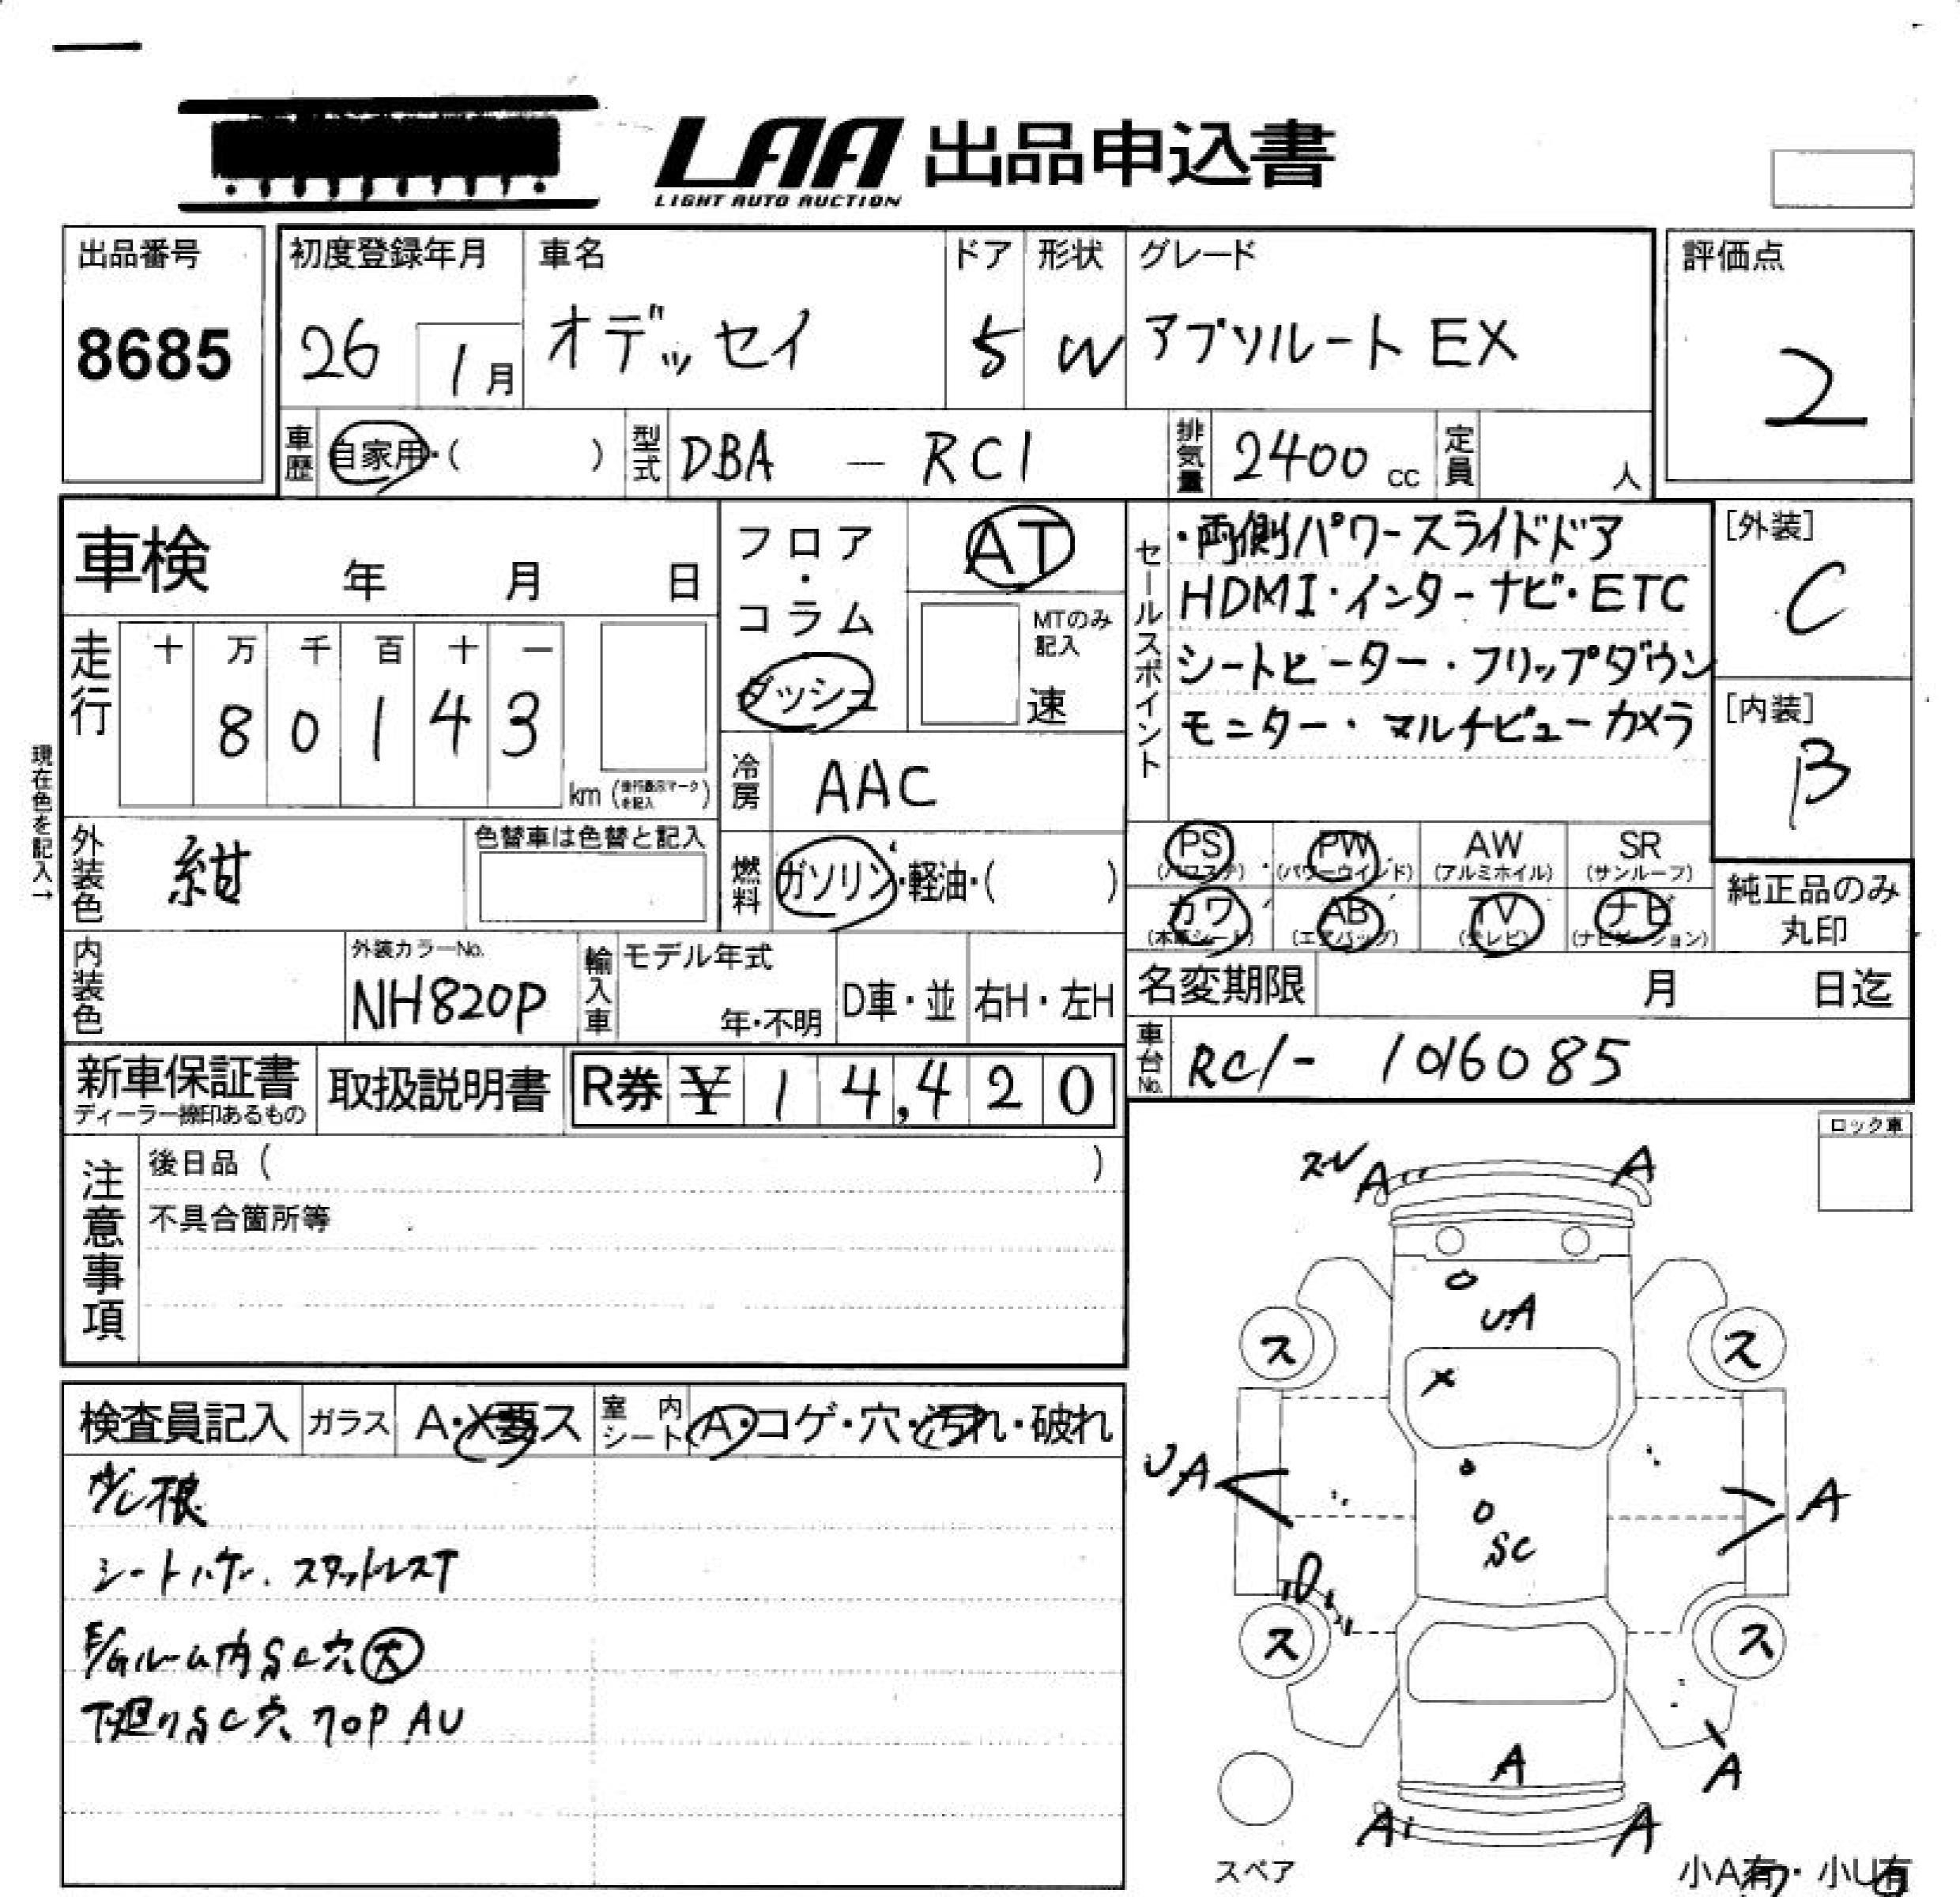 LAA 出品申込書
LIGHT AUTO AUCTION
出品番号
8685
初度登録年月
26 1月
車名
オデッセイ
ドア
5
形状
W
グレード
アブソルート EX
評価点
2
車歴 自家用・( )
型式 DBA — RC1
排気量 2400 cc
定員 人
車検 年 月 日
フロア・コラム
ダッシュ
AT
MTのみ記入
速
セールスポイント
・両側パワースライドドア
HDMI・インターナビ・ETC
シートヒーター・フリップダウン
モニター・マルチビューカメラ
[外装]
C
[内装]
B
走行
十 万 千 百 十 一
8 0 1 4 3
km (走行表示マークを記入)
冷房 AAC
現在色を記入→
外装色 紺
色替車は色替と記入
燃料 ガソリン・軽油・( )
PS (パワステ)
PW (パワーウインド)
AW (アルミホイル)
SR (サンルーフ)
カワ (本革シート)
AB (エアバッグ)
TV (テレビ)
ナビ (ナビゲーション)
純正品のみ丸印
内装色
外装カラーNo.
NH820P
輸入車
モデル年式
年・不明
D車・並
右H・左H
名変期限 月 日迄
車台No. RC1- 1016085
新車保証書
ディーラー捺印あるもの
取扱説明書
R券 ¥ 1 4,4 2 0
注意事項
後日品 ( )
不具合箇所等
ロック車
検査員記入
ガラス A・X要ス
室内シート A・コゲ・穴・汚れ・破れ
シートハゲ、スタッドレスT
E/Gルーム内SC穴 大
下廻りSC穴 フロP AU
A
A
UA
ス
ス
X
UA
A
SC
ス
ス
A
A
A
A
スペア
小A有・小U有